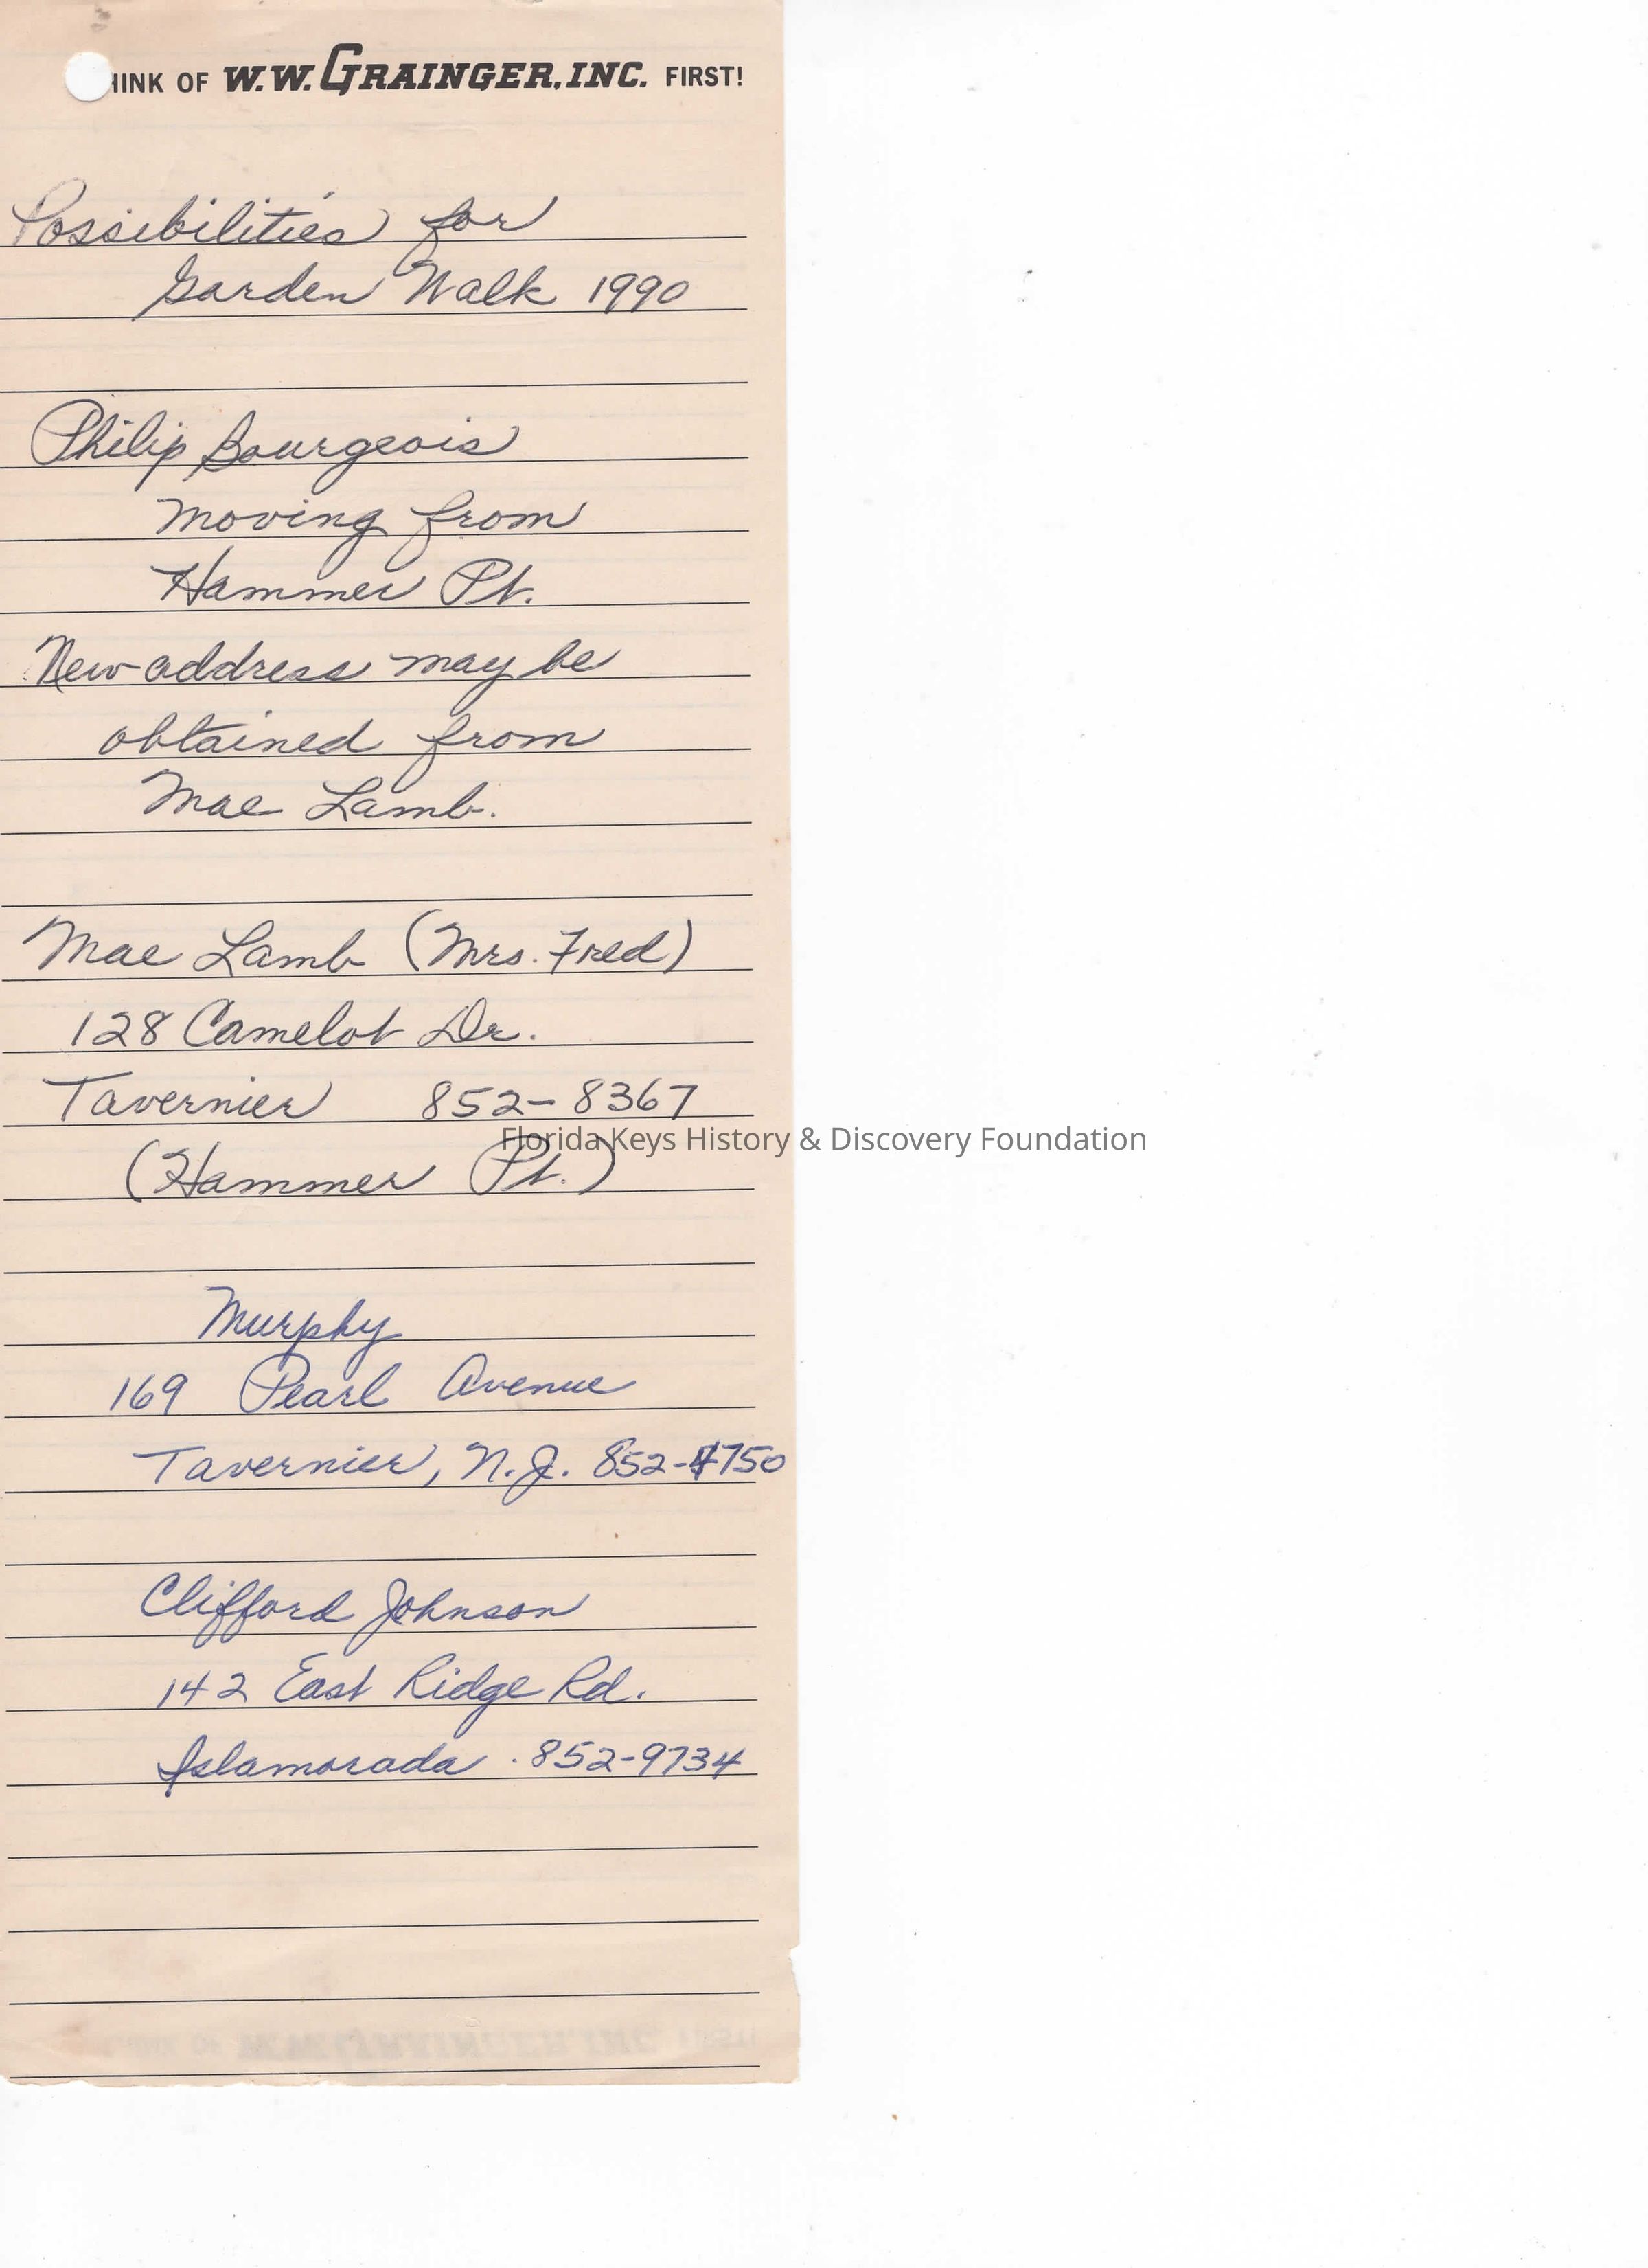 HINK OF W.W. GRAINGER, INC. FIRST!
Possibilities for
Garden Walk 1990
Philip Bourgeois
moving from
Hammer Pt.
New address may be
obtained from
Mae Lamb.
Mae Lamb (Mrs. Fred)
128 Camelot Dr.
Tavernier 852-8367
Florida Keys History & Discovery Foundation
(Hammer Pt.)
Murphy
169 Pearl Avenue
Tavernier, N.J.
Clifford Johnson
142 East Ridge Rd.
Islamorada . 852-9734